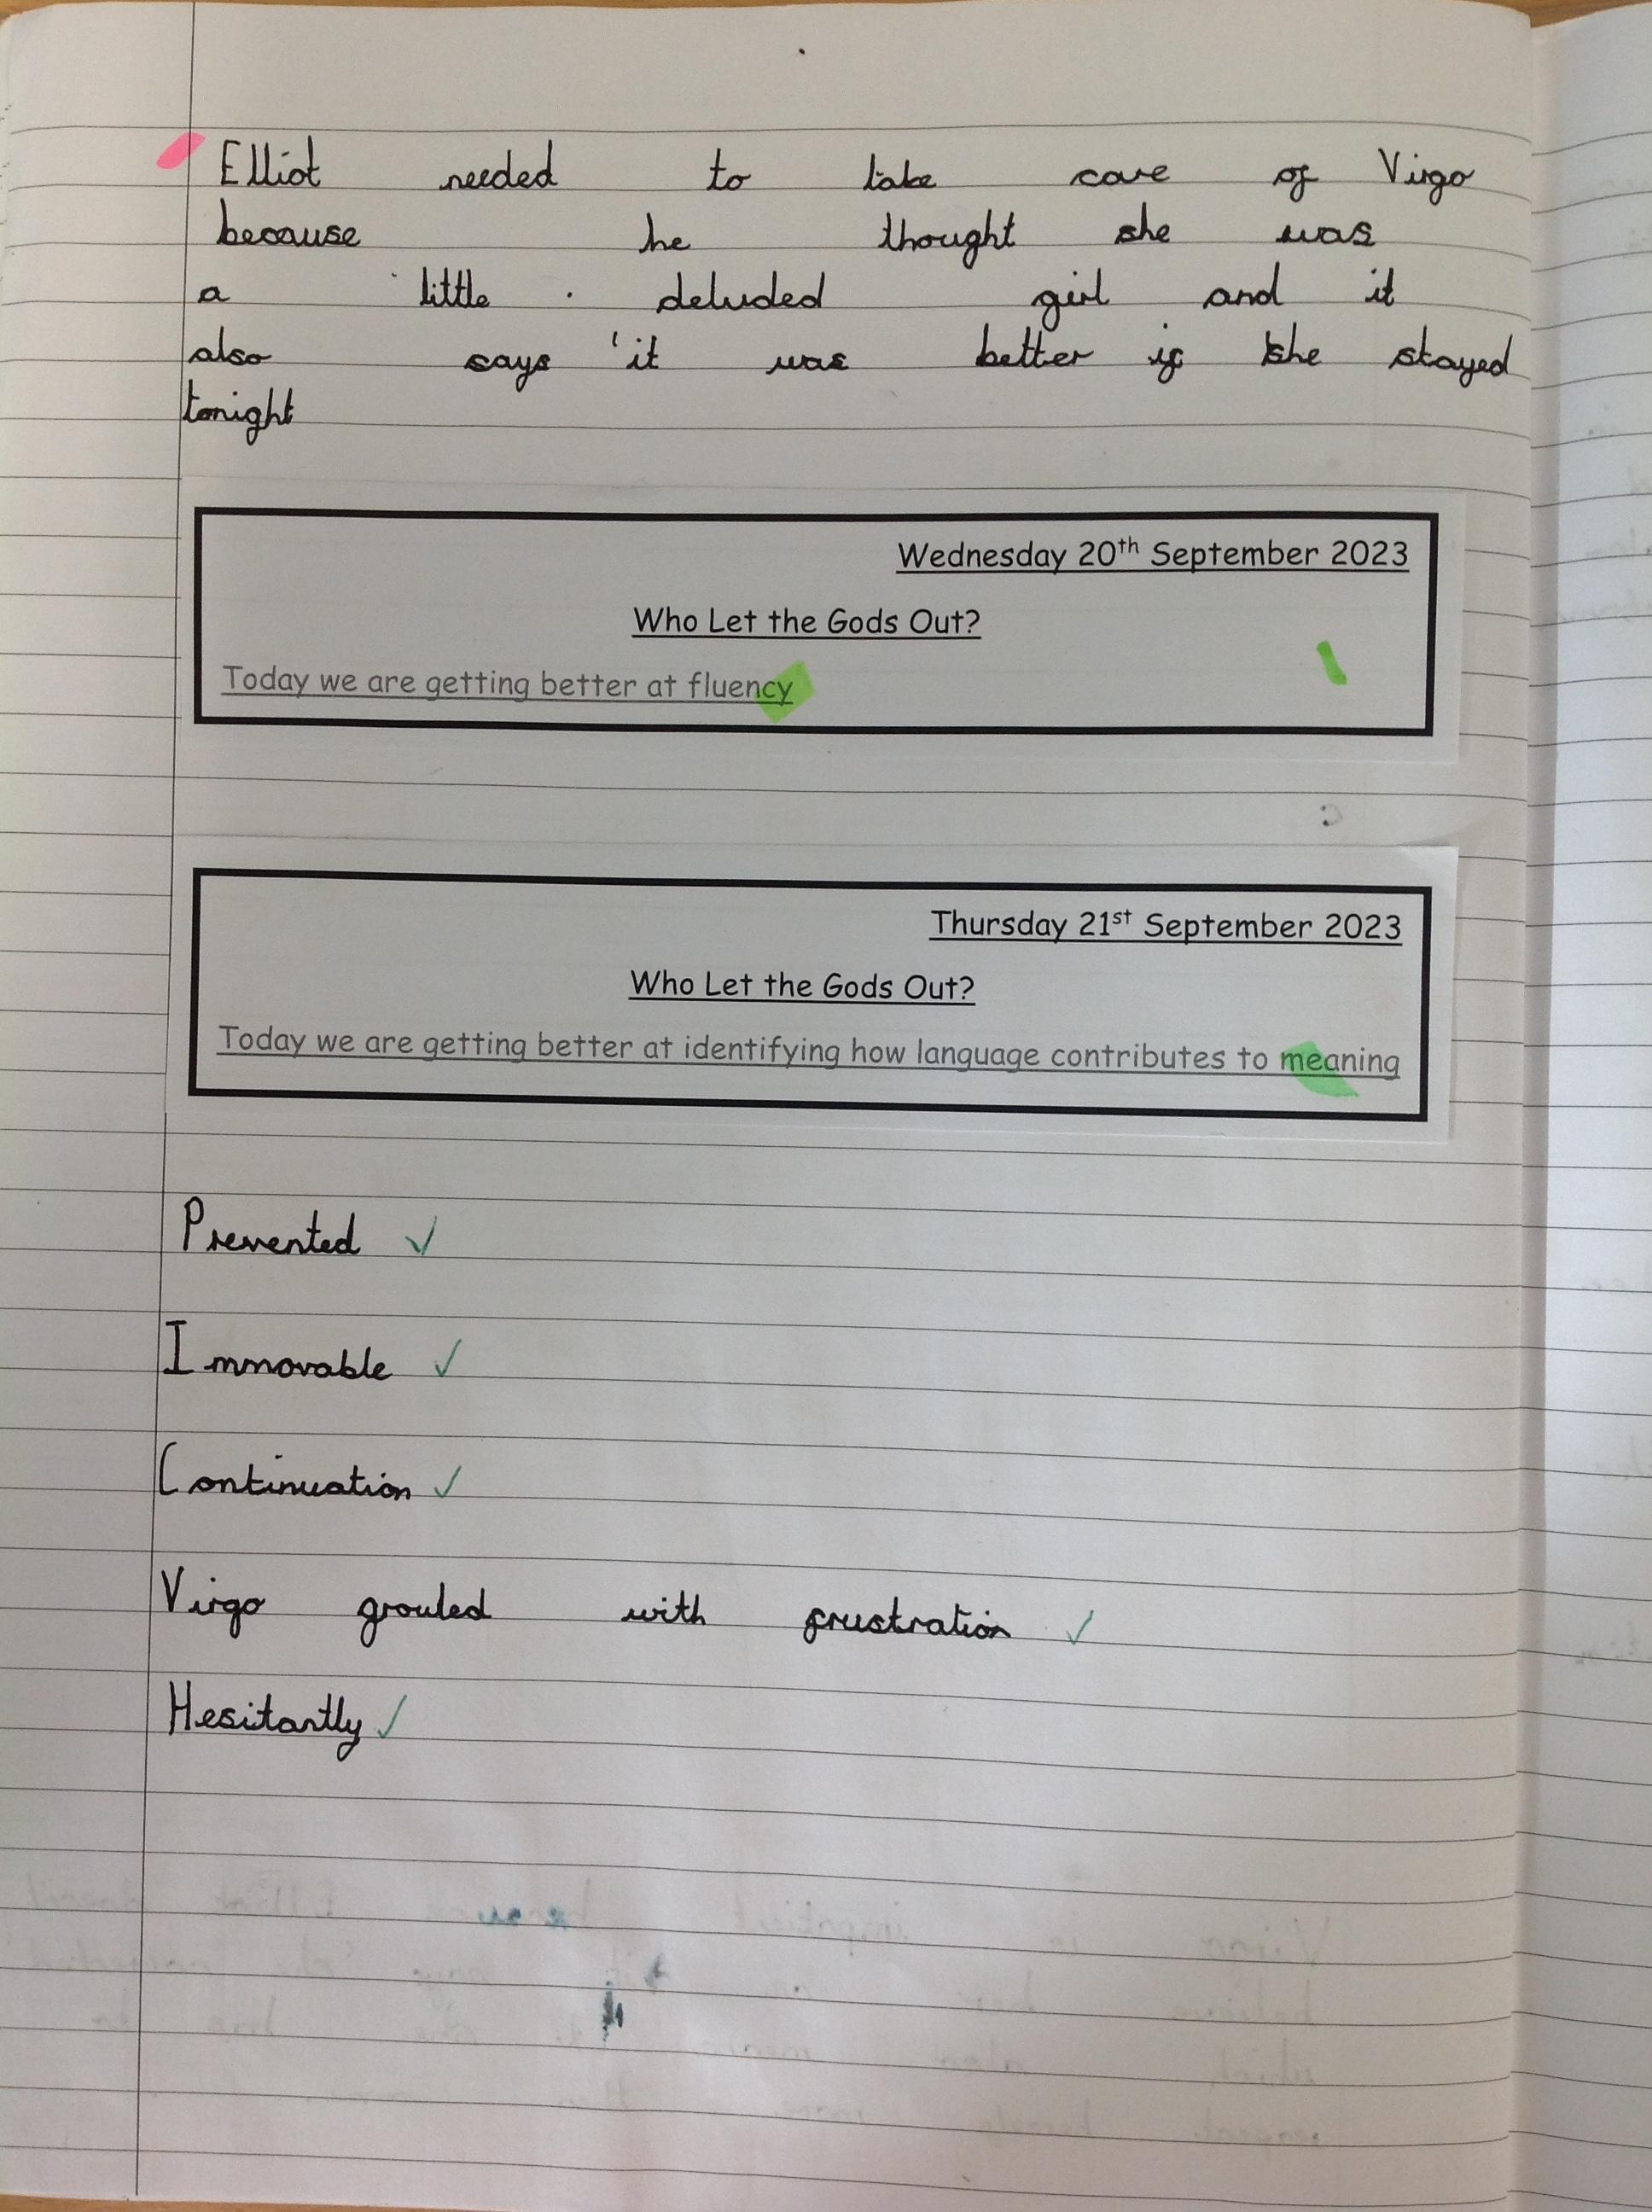 Elliot needed to take care of Virgo
because he thought she was
a little deluded girl and it
also says 'it was better if she stayed
tonight
Wednesday 20th September 2023
Who Let the Gods Out?
Today we are getting better at fluency
Thursday 21st September 2023
Who Let the Gods Out?
Today we are getting better at identifying how language contributes to meaning
Prevented ✓
Immovable ✓
Continuation ✓
Virgo grouled with frustration ✓
Hesitantly ✓